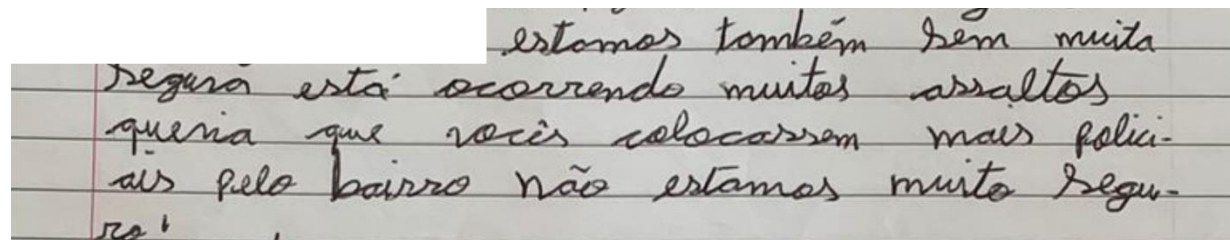 estamos também sem muita
segura está ocorrendo muitos assaltos
queria que vocês colocassem mais polici-
ais pelo bairro não estamos muito segu-
ro!